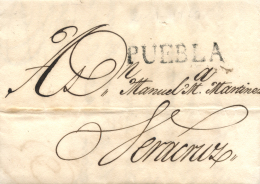 PUEBLA
A Dn
Manuel M. Martinez
Veracruz